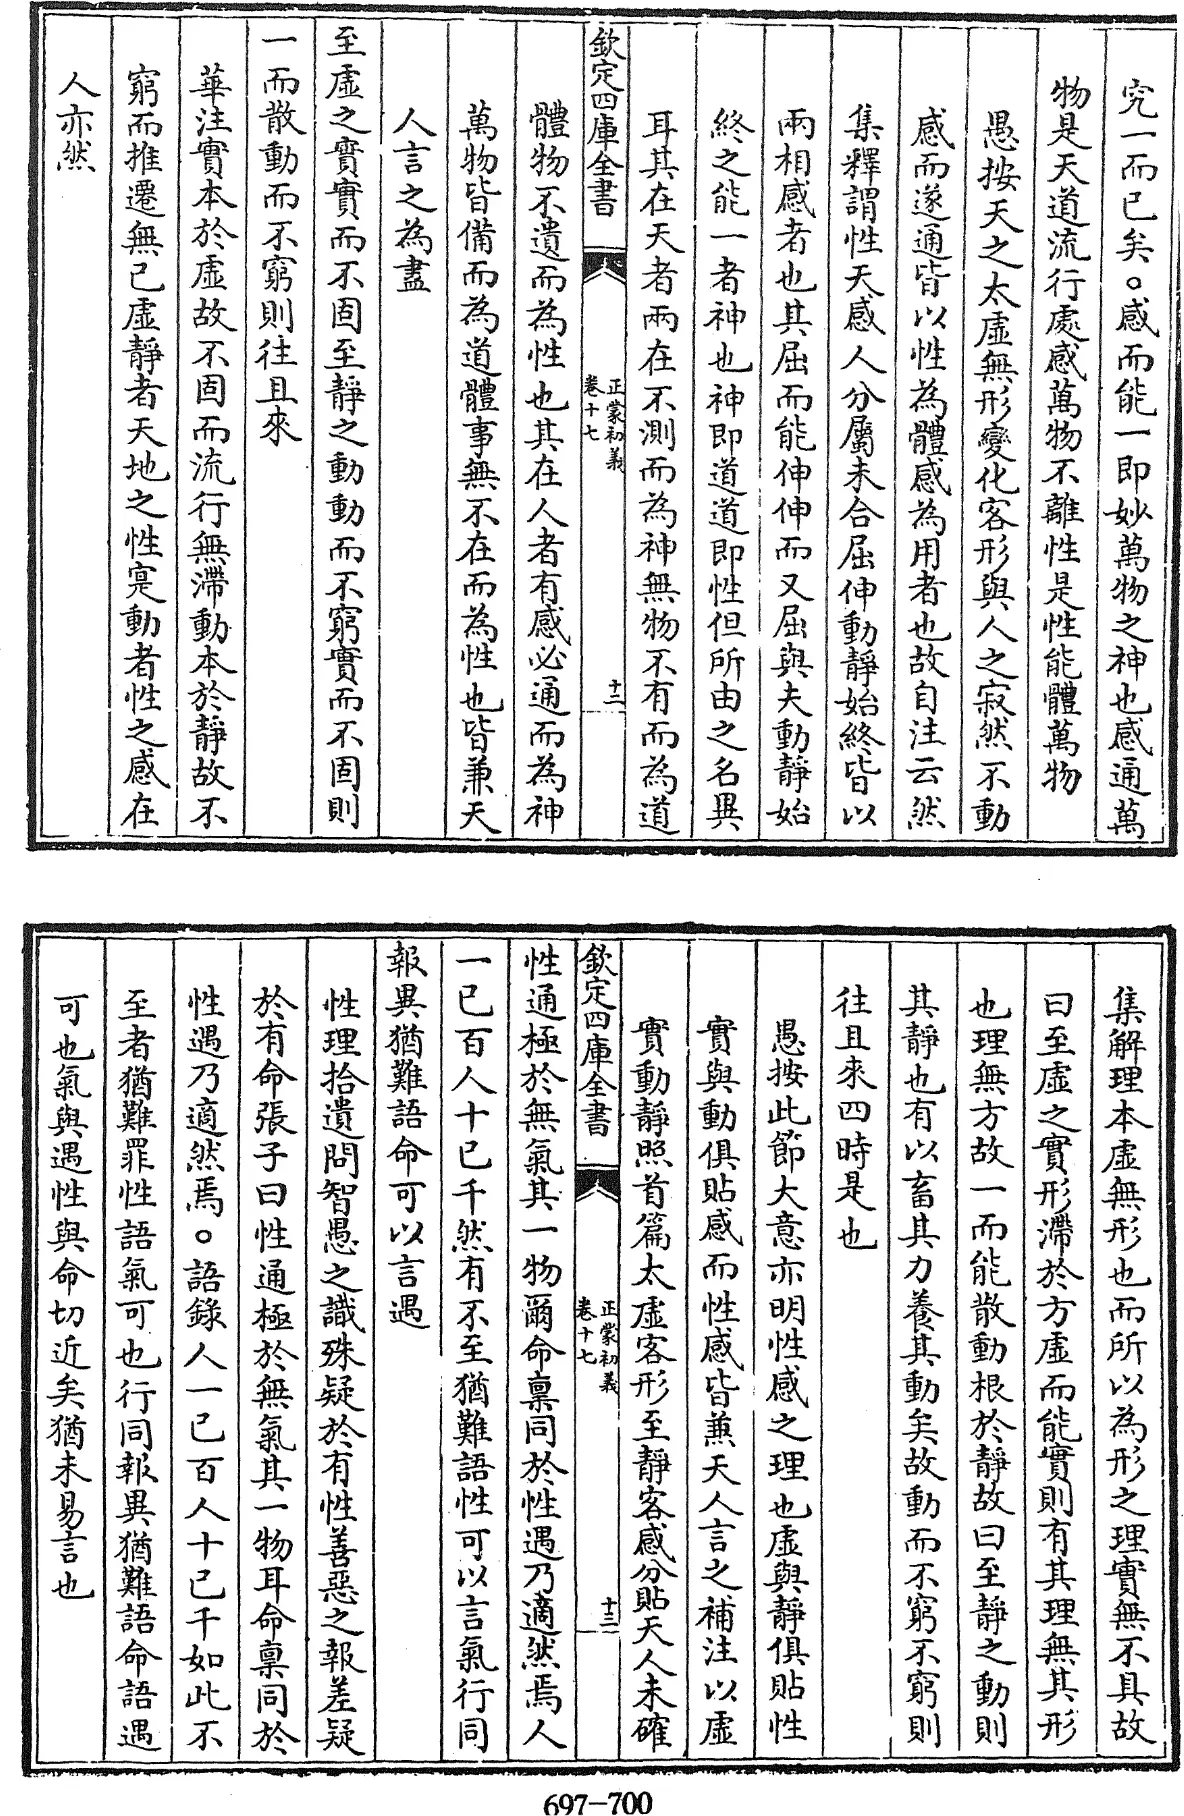 究一而已矣○感而能一即妙萬物之神也感通萬
物是天道流行處感萬物不離性是性能體萬物
愚按天之太虛無形變化客形與人之寂然不動
感而遂通皆以性為體感為用者也故自注云然
集釋謂性天感人分屬未合屈伸動靜始終皆以
兩相感者也其屈而能伸伸而又屈與夫動靜始
終之能一者神也神即道道即性但所由之名異
耳其在天者兩在不測而為神無物不有而為道
欽定四庫全書
正蒙初義
卷十七
十二
體物不遺而為性也其在人者有感必通而為神
萬物皆備而為道體事無不在而為性也皆兼天
人言之為盡
至虛之實實而不固至靜之動動而不窮實而不固則
一而散動而不窮則往且來
華注實本於虛故不固而流行無滯動本於靜故不
窮而推遷無已虛靜者天地之性寔動者性之感在
人亦然
集解理本虛無形也而所以為形之理實無不具故
曰至虛之實形滯於方虛而能實則有其理無其形
也理無方故一而能散動根於靜故曰至靜之動則
其靜也有以畜其力養其動矣故動而不窮不窮則
往且來四時是也
愚按此節大意亦明性感之理也虛與靜俱貼性
實與動俱貼感而性感皆兼天人言之補注以虛
實動靜照首篇太虛客形至靜客感分貼天人未確
欽定四庫全書
正蒙初義
卷十七
十三
性通極於無氣其一物爾命稟同於性遇乃適然焉人
一已百人十已千然有不至猶難語性可以言氣行同
報異猶難語命可以言遇
性理拾遺問智愚之識殊疑於有性善惡之報差疑
於有命張子曰性通極於無氣其一物耳命稟同於
性遇乃適然焉○語錄人一已百人十已千如此不
至者猶難罪性語氣可也行同報異猶難語命語遇
可也氣與遇性與命切近矣猶未易言也
697-700